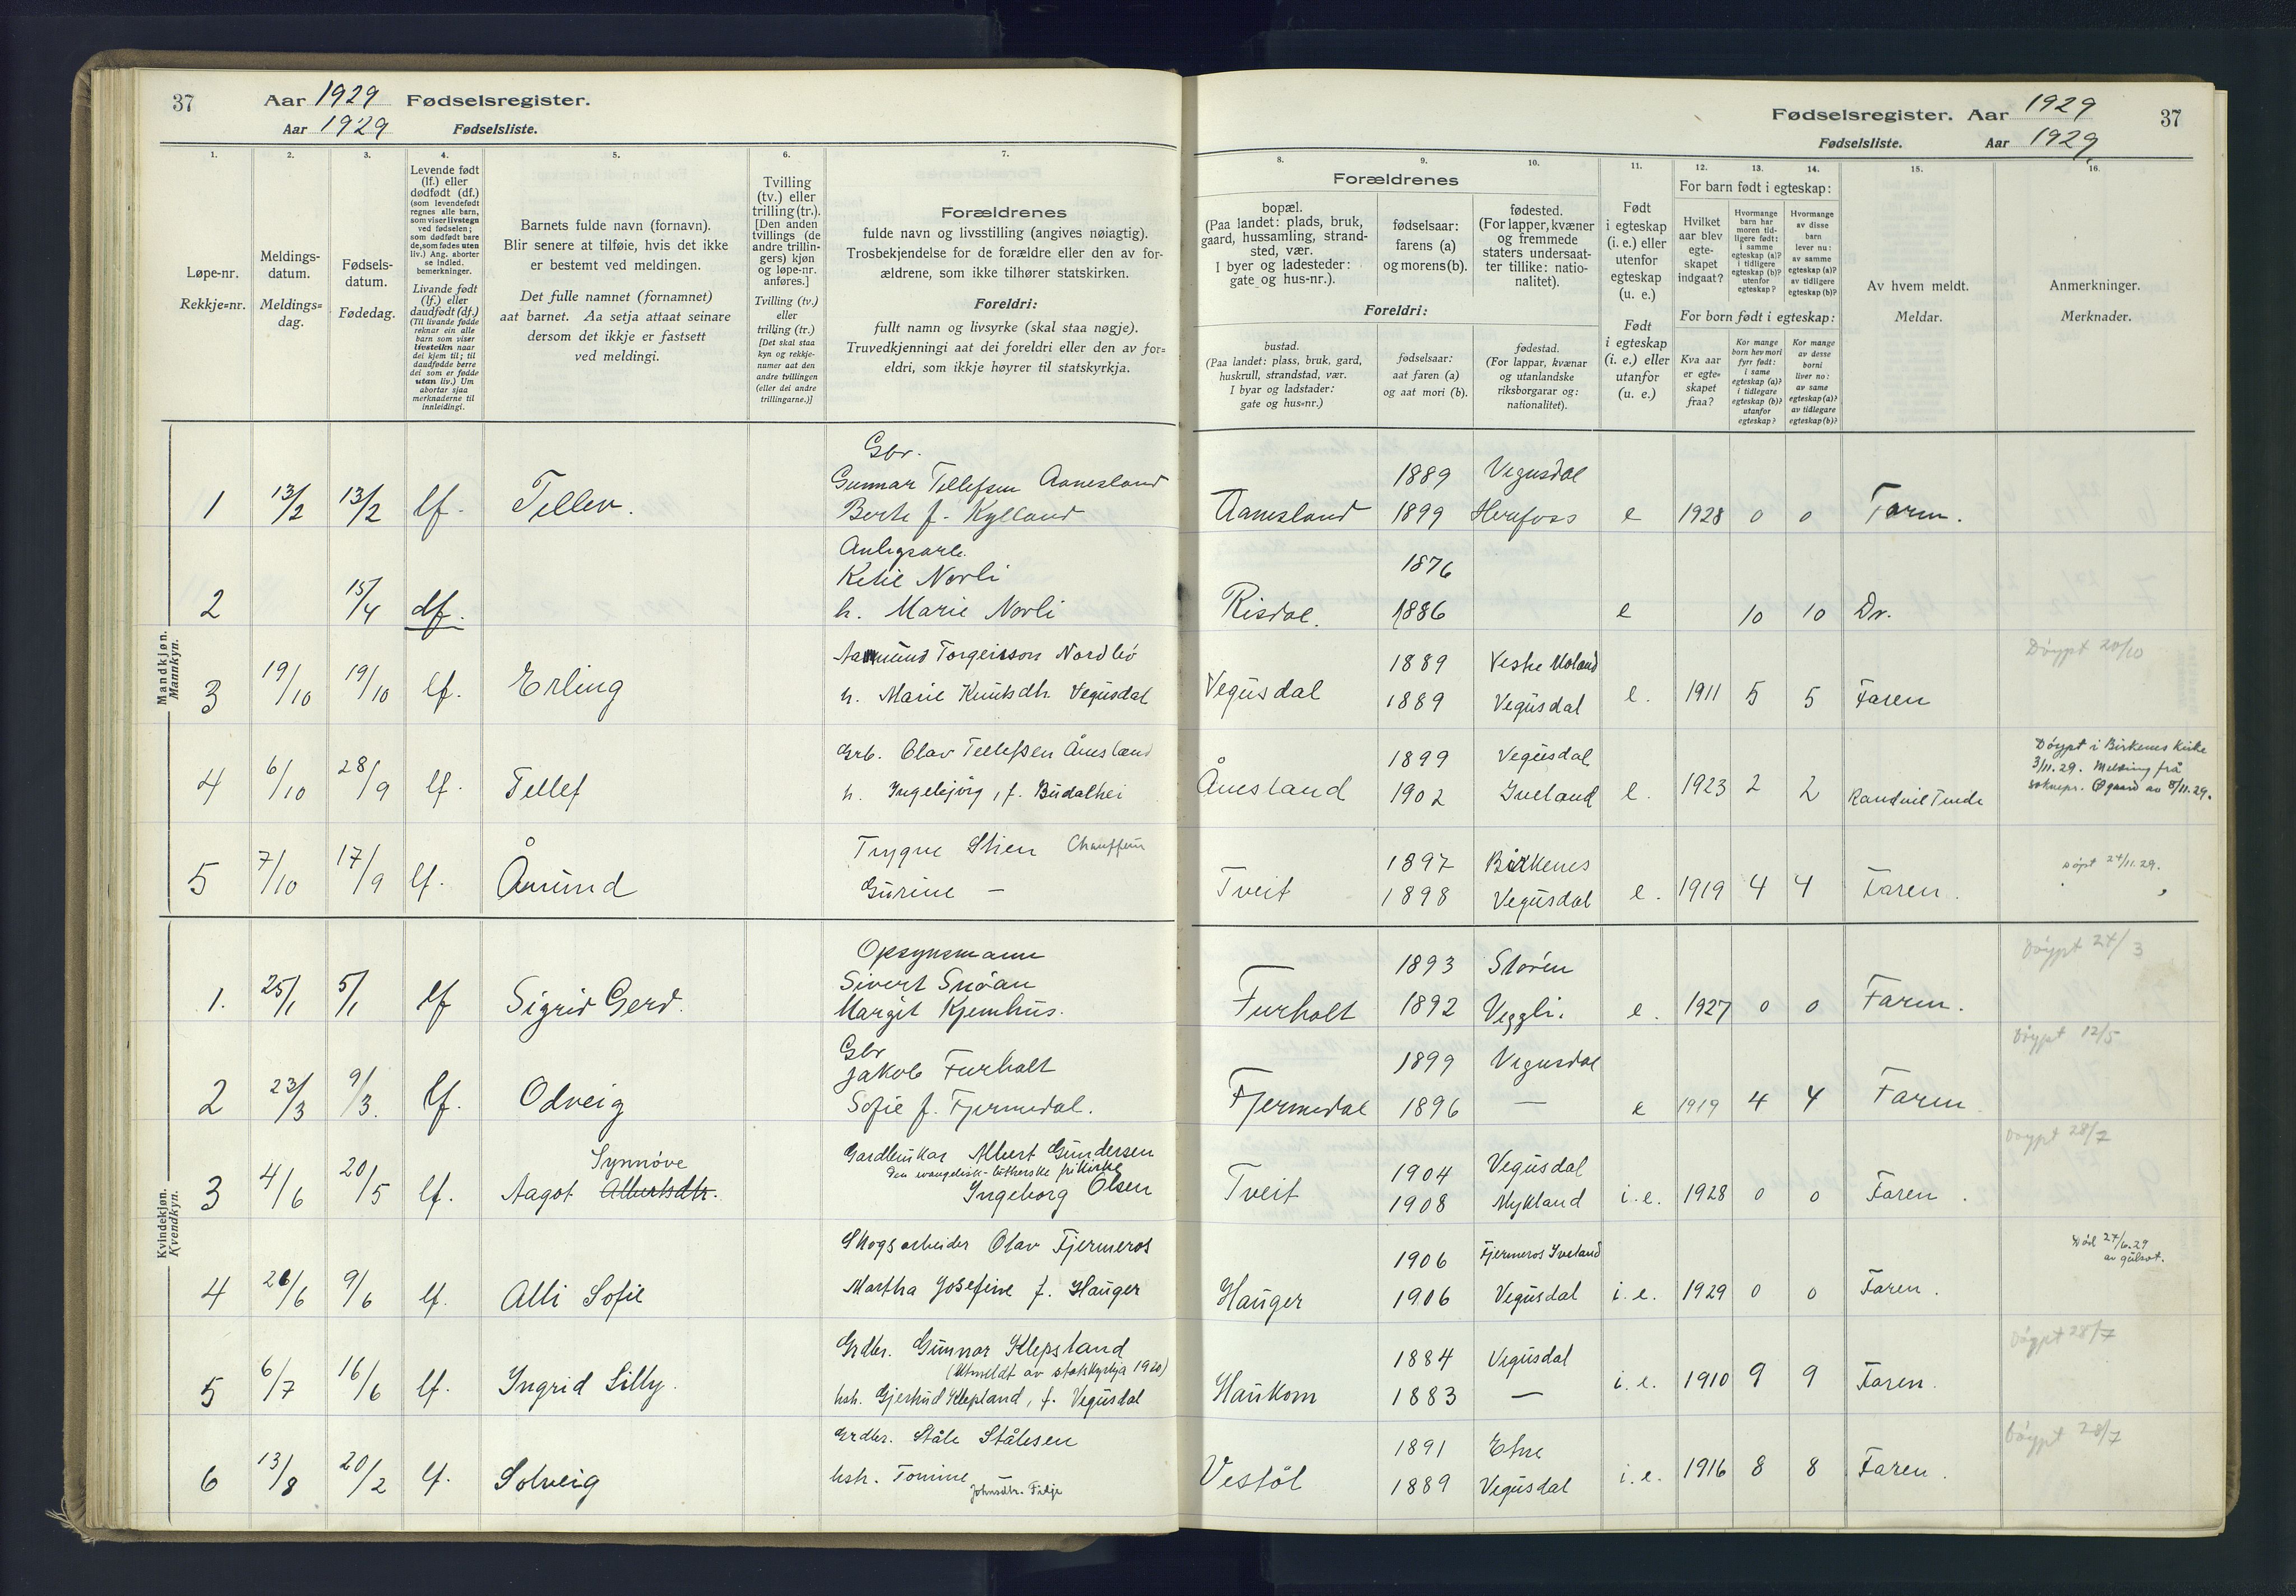 37
Aar 1929 Fødselsregister.
Aar 1929 Fødselsliste.
1.
Løpe-nr.
Rekkje=nr.
2.
Meldings-
datum.
Meldings=
dag.
3.
Fødsels-
datum.
Fødedag.
4.
Levende født
(lf.) eller
dødfødt (df.)
(som levendefødt
regnes alle barn,
som viser livstegn
ved fødselen;
som dødfødt bare
de, som fødes uten
liv.) Ang. aborter
se indled.
bemerkninger.
Livande født
(lf.) eller
daudfødt (df.)
(Til livande fødde
reknar ein alle
barn som viser
livsteikn naar
dei kjem til; til
daudfødde berre
dei som er fødde
utan liv.) Um
abortar sjaa
merknaderne til
innleidingi.
5.
Barnets fulde navn (fornavn).
Blir senere at tilføie, hvis det ikke
er bestemt ved meldingen.
Det fulle namnet (fornamnet)
aat barnet. Aa setja attaat seinare
dersom det ikkje er fastsett
ved meldingi.
6.
Tvilling
(tv.) eller
trilling (tr.).
[Den anden
tvillings (de
andre trillin-
gers) kjøn
og løpe-nr.
anføres.]
Tvilling (tv.)
eller
trilling (tr.)
[Det skal staa
kyn og rekkje-
numer aat den
andre tvillingen
(eller dei andre
trillingarne.)]
7.
Forældrenes
fulde navn og livsstilling (angives nøiagtig).
Trosbekjendelse for de forældre eller den av for-
ældrene, som ikke tilhører statskirken.
Foreldri:
fullt namn og livsyrke (skal staa nøgje).
Truvedkjenningi aat dei foreldri eller den av for=
eldri, som ikkje høyrer til statskyrkja.
Mandkjøn.
Mannkyn.
Gbr.
Gunnar Tellefsen Aanesland
1 13/2 13/2 lf. Tellev. Berte f. Kylland
Ketil Norli
2 15/4 df. h. Marie Norli
Aanund Torgeirsson Nordbö
3 19/10 19/10 lf. Erling h. Marie Knutsdtr. Vegusdal
Grb. Olav Tellefsen Ånesland
4 6/10 28/9 lf. Tellef h. Ingebjörg, f. Budalhei
Trygve Stien Chauffeur
5 7/10 17/9 lf. Åmund Gurine —
Kvindekjøn.
Kvendkyn.
Opsynsmann
Sivert Snöan
1. 25/1 5/1 lf Sigrid Gerd. Margit Kjemhus.
Gbr
Jakob Furholt
2 23/3 9/3. lf. Odveig Sofie f. Fjermedal.
Synnöve
Gardbrukar Albert Gundersen
Den evangelisk-lutherske frikirke
3 4/6 20/5 lf. Aagot Albertsdtr. Ingeborg Olsen
Skogsarbeider Olav Fjermeros
4 26/6 9/6 lf. Alli Sofie Martha Josefine f. Hauger
Grdbr. Gunnar Klepsland
(Utmeldt av statskyrkja 1920)
5 6/7 16/6 lf. Ingrid Lilly. hsh. Gjertrud Klepland, f. Vegusdal
Grdbr. Ståle Stålesen
6 13/8 20/2 lf. Solveig hsh. Tomine
Johnsdtr. Fidje
Fødselsregister. Aar 1929
Fødselsliste. Aar 1929
37
8.
9.
10.
Forældrenes
bopæl.
(Paa landet: plads, bruk,
gaard, hussamling, strand-
sted, vær.
I byer og ladesteder:
gate og hus-nr.).
fødselsaar:
farens (a)
og morens (b).
fødested.
(For lapper, kvæner
og fremmede
staters undersaat-
ter tillike: natio-
nalitet).
Foreldri:
bustad.
(Paa landet: plass, bruk, gard,
huskrull, strandstad, vær.
I byar og ladstader:
gate og hus=nr.)
fødselsaar:
aat faren (a)
og aat mori (b).
fødestad.
(For lappar, kvænar
og utanlandske
riksborgarar og:
nationalitet).
11.
Født
i egteskap
(i. e.) eller
utenfor
egteskap
(u. e.)
Født
i egteskap
(i. e.) eller
utanfor
(u. e.)
12.
13.
14.
For barn født i egteskap:
Hvilket
aar blev
egte-
skapet
indgaat?
Hvormange
barn har
moren tid-
ligere født:
i samme
egteskap (a)?
i tidligere
egteskap (b)?
utenfor
egteskap?
Hvormange
av disse
barn
lever nu:
av samme
egteskap (a)?
av tidligere
egteskap (b)?
For born født i egteskap:
Kva aar
er egte=
skapet
fraa?
Kor mange
born hev mori
fyrr født:
i same
egteskap (a)?
i tidlegare
egteskap (b)?
utanfor
egteskap?
Kor mange
av desse
borni
liver no:
av same
egteskap (a)?
av tidlegare
egteskap (b)?
15.
Av hvem meldt.
Meldar.
16.
Anmerkninger.
Merknader.
1889 Vegusdal
Aanesland 1899 Herefoss e 1928 0 0 Faren.
1876
Risdal. 1886 e 10 10 Dr.
Döypt 20/10
1889 Vestre Moland
Vegusdal 1889 Vegusdal e. 1911 5 5 Faren
Döypt i Birkenes kirke
3/11.29. Melding frå
soknepr. Øgaard av 8/11.29.
1899 Vegusdal
Ånesland 1902 Iveland e. 1923 2 2 Randvil Tveide
1897 Birkenes döpt 24/11.29.
Tveit 1898 Vegusdal e. 1919 4 4 Faren.
Döypt 24/3
1893 Stören
Furholt 1892 Veggli. e. 1927 0 0 Faren.
Döypt 12/5
1899 Vegusdal
Fjermedal 1896 — e 1919 4 4 Faren
Döypt 28/7
1904 Vegusdal
Tveit 1908 Mykland i.e. 1928 0 0 Faren.
Död 27/6.29
av gulsot.
1906 Fjermeros Iveland
Hauger 1906 Vegusdal i.e. 1929 0 0 Faren.
Döypt 28/7
1884 Vegusdal
Haukom 1883 — i.e. 1910 9 9 Faren.
Döypt 28/7
1891 Etne
Vestöl 1889 Vegusdal i.e. 1916 8 8 Faren.